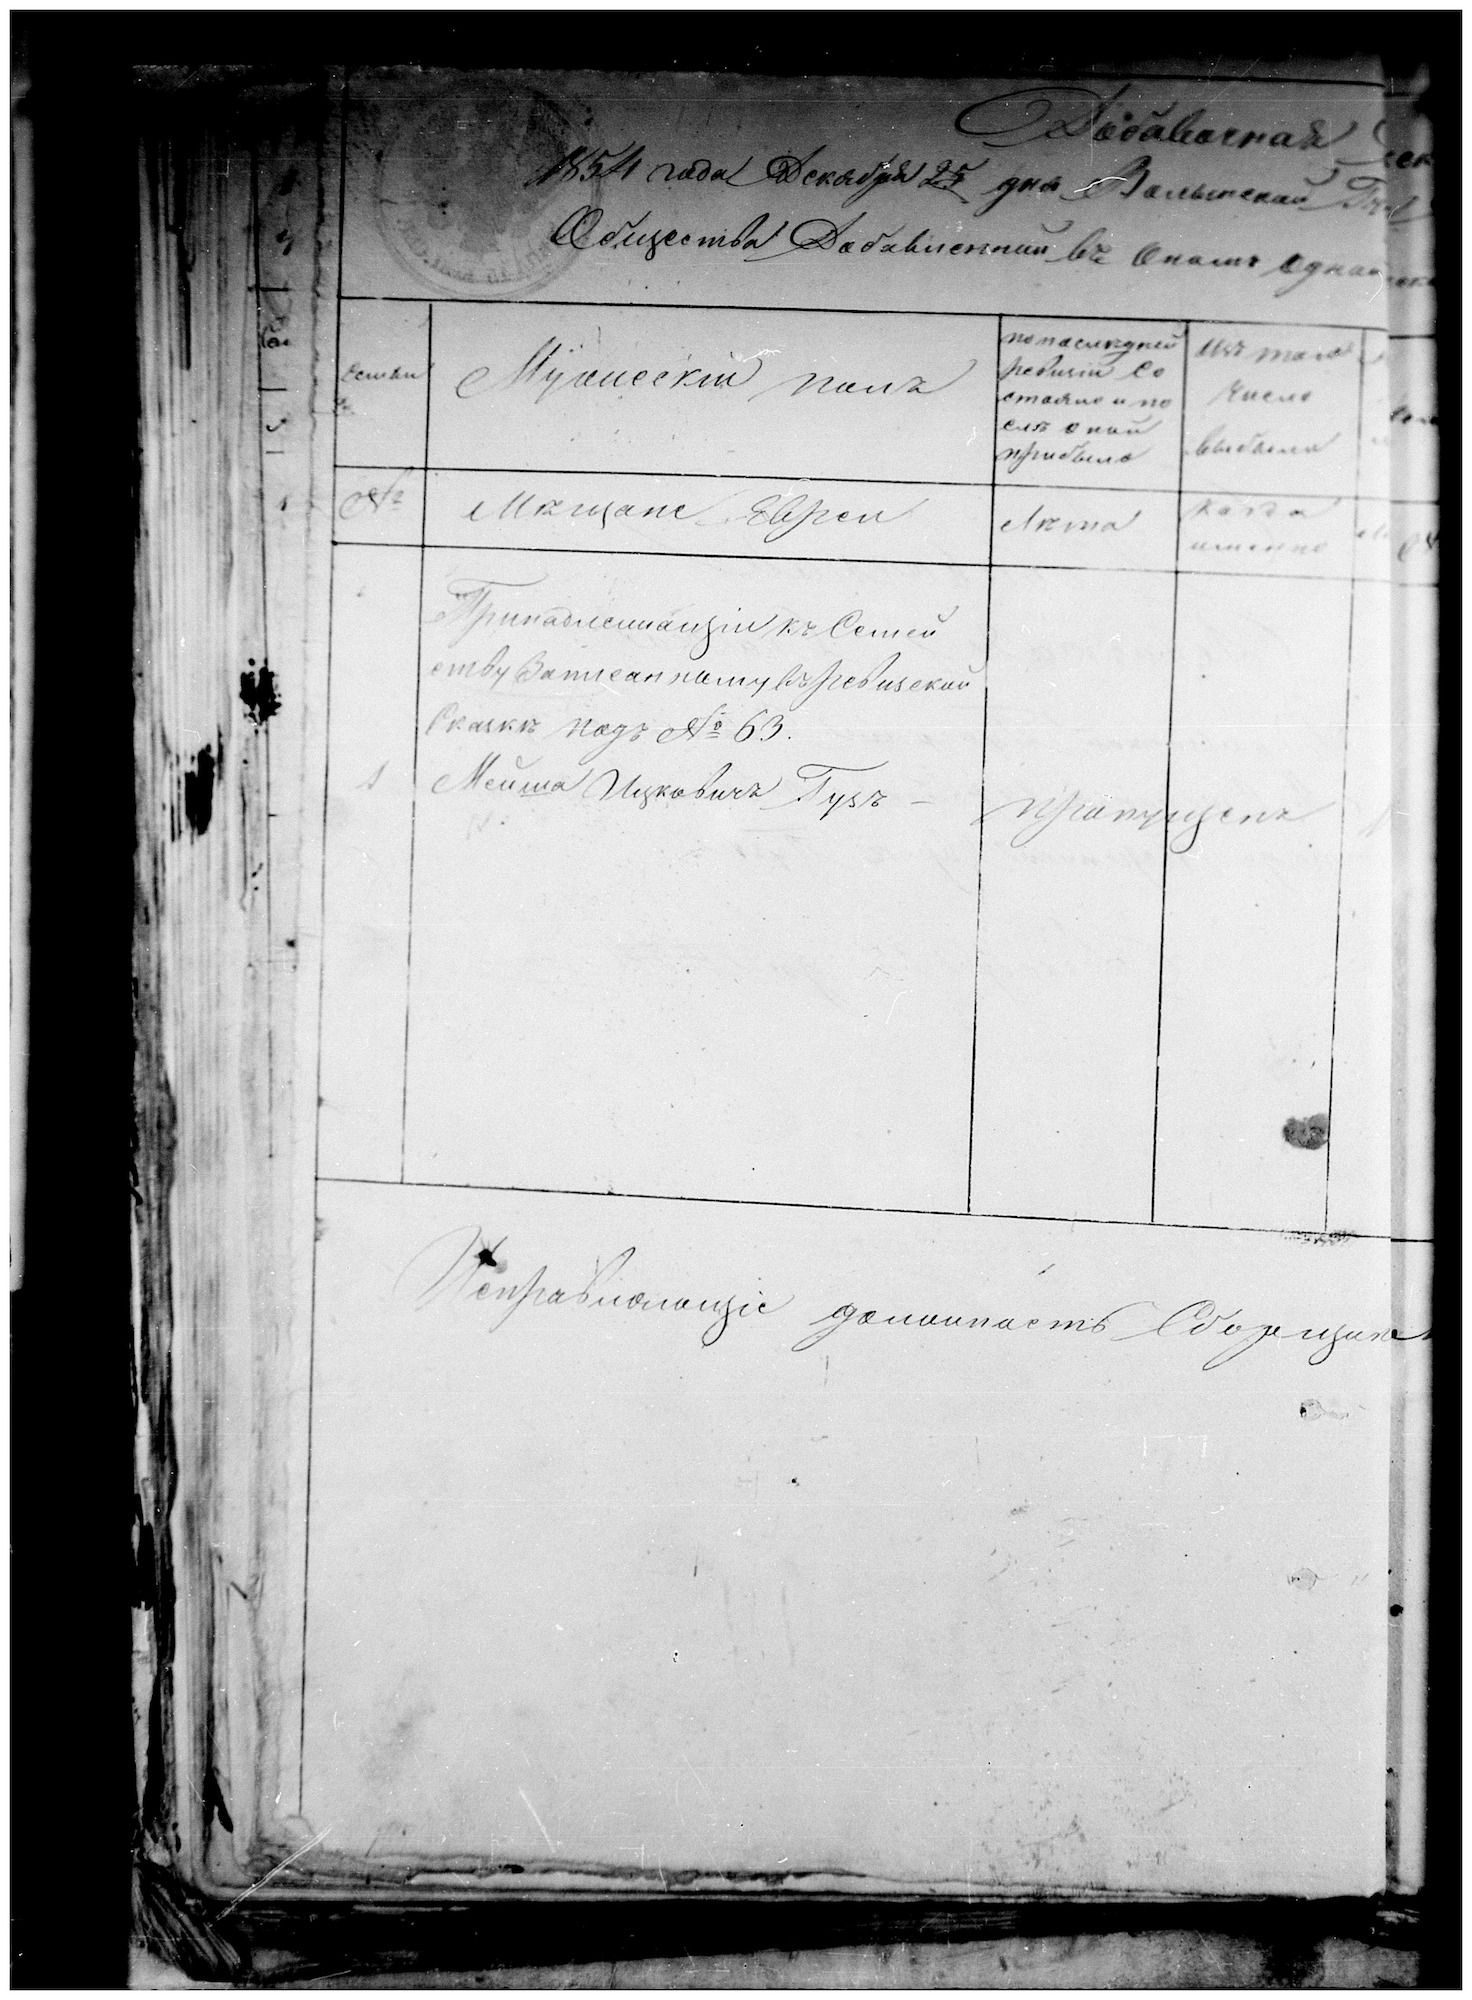 Добавочная
1854 года Декабря 25 дня Волынской
Общества Добавленной въ ономъ
Семьи
Мужескій полъ
по последней
ревизіи со
стояло и по
слѣ оной
прибыло
Изъ того
числа
выбыло
№
Мѣщане Евреи
Лѣта
когда
именно
Принадлежащіи къ Семей
ству Записанному въ ревизской
Сказкѣ подъ № 63.
1 Мейша Ицковичъ Гузъ - пропущенъ
Исправляющіе должность Сборщика